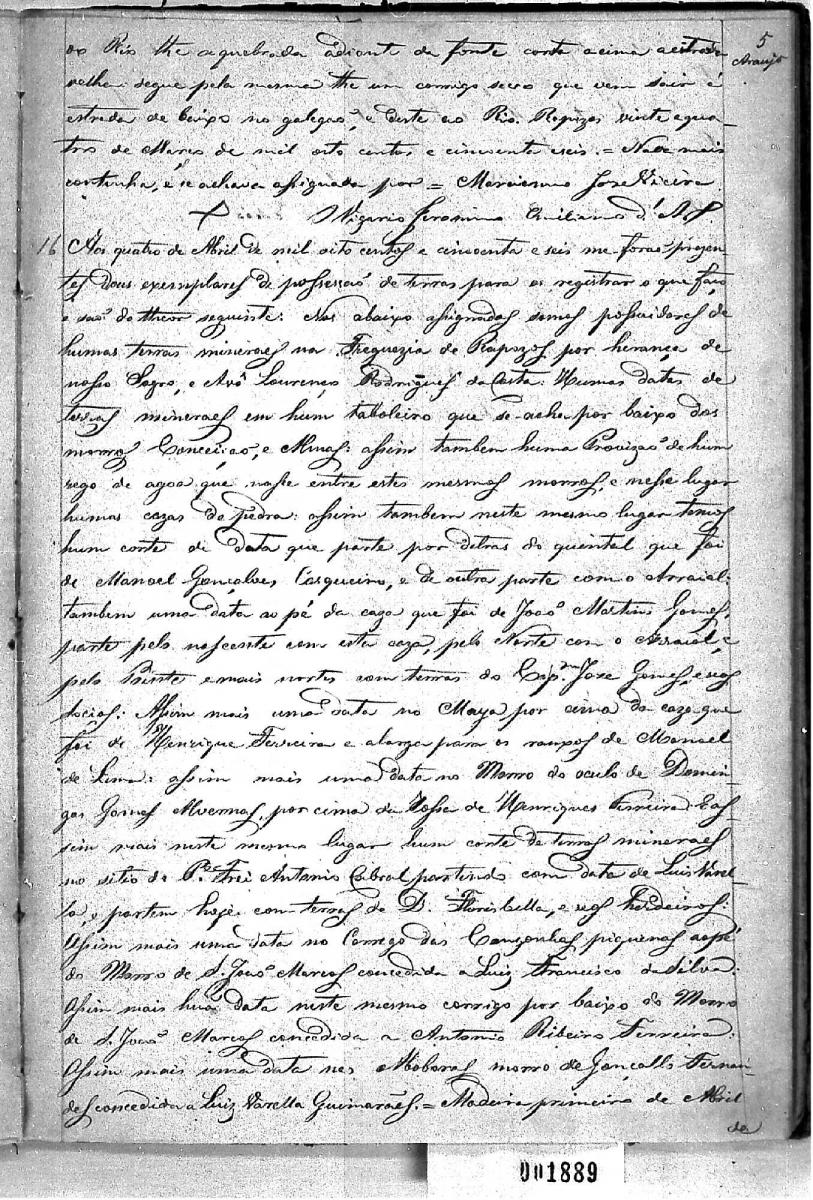 5
Araujo
ao Rio the aquebrada adiante da fonte corta acima aestrada
velha: segue pela mesma the um corrigo seco que vem sair á
estrada de baixo no galego, e deste ao Rio. Rapozos vinte equa-
tro de Março de mil oito centos e cincoenta eseis. = Nada mais
continha, e se achava assignada por = José Vieira
Vigario Jeronimo Emiliano d'
16 Aos quatro de Abril de mil oito centos e cincoenta e seis me forão prezen-
tes dous exemplares de possessão de terras para os registrar o que faço
e são do theor seguinte: Nos abaixo assignados somos possuidores de
humas terras mineraes na Freguezia de Rapozos por herança de
nosso Sogro, e Avô Lourenço Rodrigues da Costa: Humas datas de
terras mineraes em hum taboleiro que se acha por baixo dos
morros Conceição, e Minas: assim tambem huma Provizão de hum
rego de agoa que nasse entre estes mesmos morros, e nesse lugar
humas cazas de pedra: assim tambem neste mesmo lugar temos
hum corte de data que parte por detras do quintal que foi
de Manoel Gonçalves Casqueiro, e de outra parte com o Arraial:
tambem uma data ao pé da caza que foi de João Martins Gomes,
parte pelo nascente com esta caza, pelo Norte com o Arraial, e
pelo Poente e mais nortes com terras do Cap.am Joze Gomes, e seos
socios: Assim mais uma data no Maya por cima da caza que
foi de Henrique Ferreira e alarga para os ranxos de Manoel
de Lima: assim mais uma data no Morro do oculo de Domin-
gos Gomes por cima da Tossa de Henriques Ferreira: Eas-
sim mais neste mesmo lugar hum corte de terras mineraes
no sitio do Pe. Frei Antonio Cabral partindo com data de Luis Varel-
la, e partem hoje com terras de D. Florisbella, e seos herdeiros:
Assim mais uma data no Corrego das Conzonhas piquenas aopé
do Morro de S. João Marcos concedida a Luiz Francisco da Silva:
Assim mais huã data neste mesmo corrigo por baixo do Morro
de S. João Marcos concedida a Antonio Ribeiro Ferreira:
Assim mais uma data nos morro de Gonçallo Fernan-
des concedida a Luiz Varella Guimarães. = Madeira primeiro de Abril
de
001889